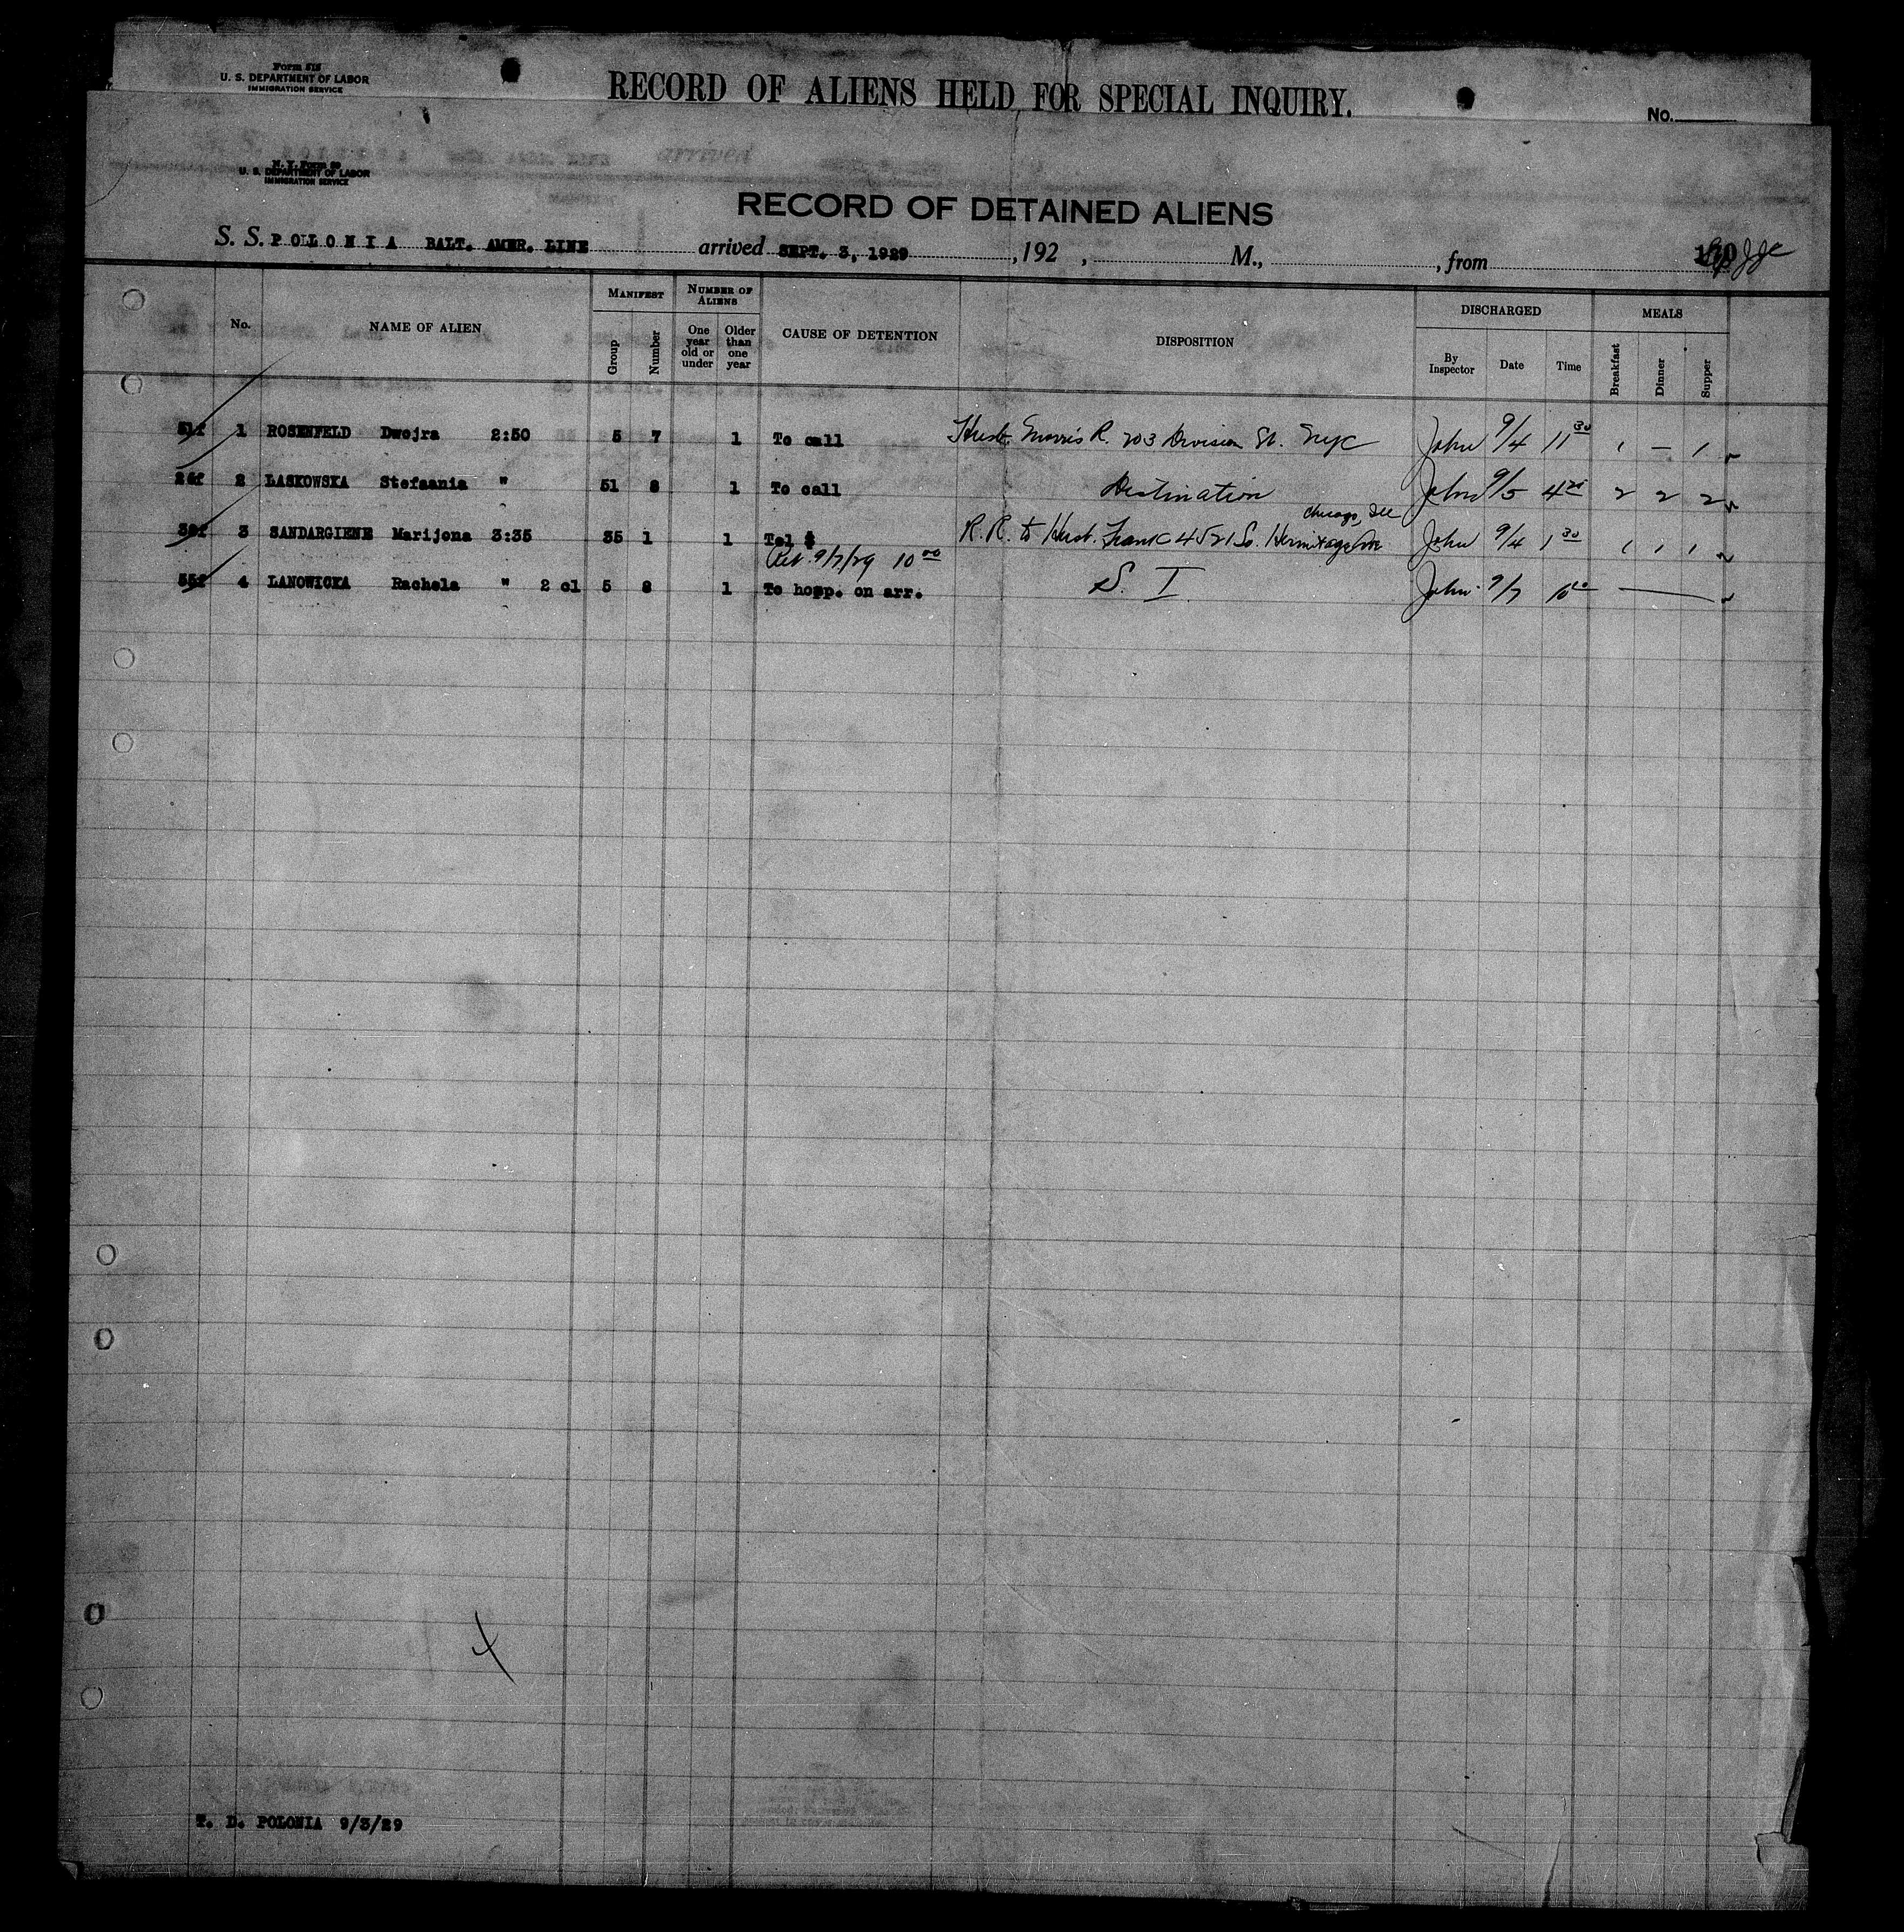 Form 515
U. S. DEPARTMENT OF LABOR
IMMIGRATION SERVICE
RECORD OF ALIENS HELD FOR SPECIAL INQUIRY.
No.
arrived
U. S. DEPARTMENT OF LABOR
IMMIGRATION SERVICE
RECORD OF DETAINED ALIENS
S. S. POLONIA BALT. AMER. LINE arrived SEPT. 3, 1929 , 192 , M., , from
No. NAME OF ALIEN MANIFEST Group Number NUMBER OF ALIENS One year old or under Older than one year CAUSE OF DETENTION DISPOSITION DISCHARGED By Inspector Date Time MEALS Breakfast Dinner Supper
51f 1 ROSENFELD Dwojra 2:50 5 7 1 To call Husb Morris R. 203 Division St. NYC John 9/4 11 30 1 — 1
26f 2 LASKOWSKA Stefaania " 51 8 1 To call Destination John 9/5 4 2 2 2
Chicago, Ill
3 SANDARGIENE Marijona 3:35 35 1 1 Tel $ R.R. to Husb. Frank 4521 So. Hermitage Ave John 9/4 1 30 1 1 1
Ret. 9/7/29 10 00
55f 4 LANOWICKA Rachela " 2 cl 5 8 1 To hosp. on arr. S. I John 9/7 10 00
4
T. D. POLONIA 9/3/29